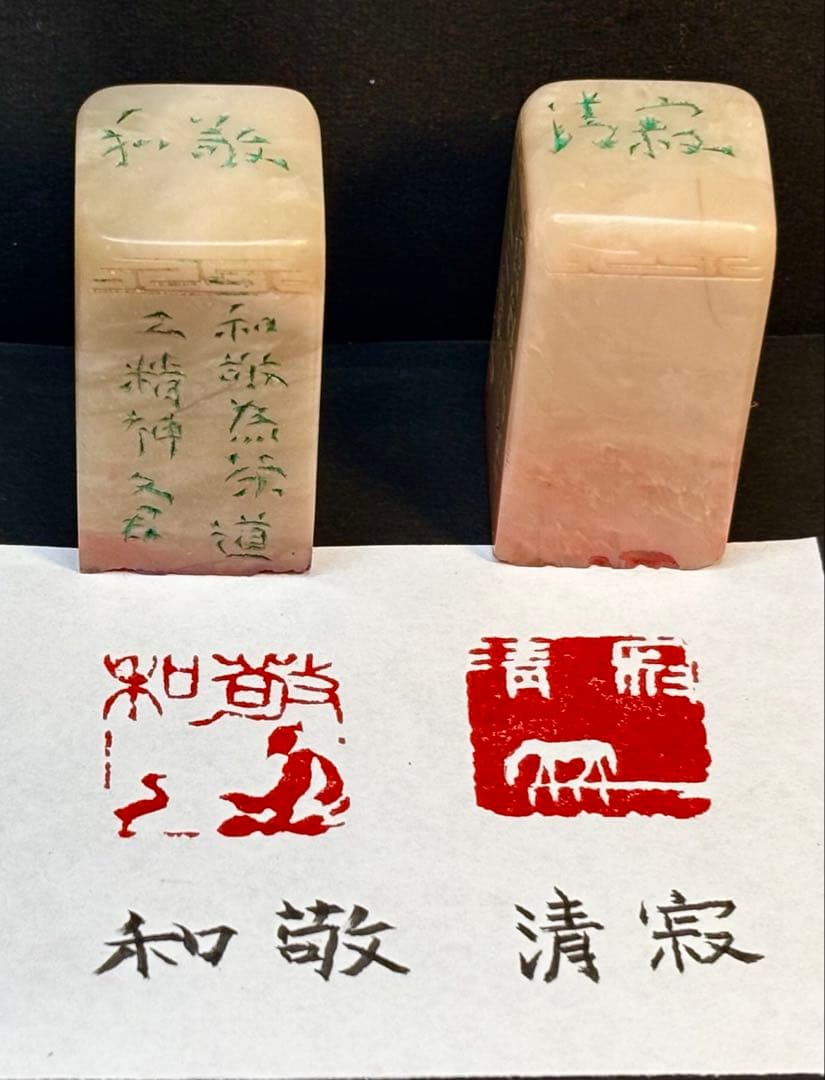 和敬
清寂
和敬為茶道
之精神文君
和敬
清寂
和敬
清寂